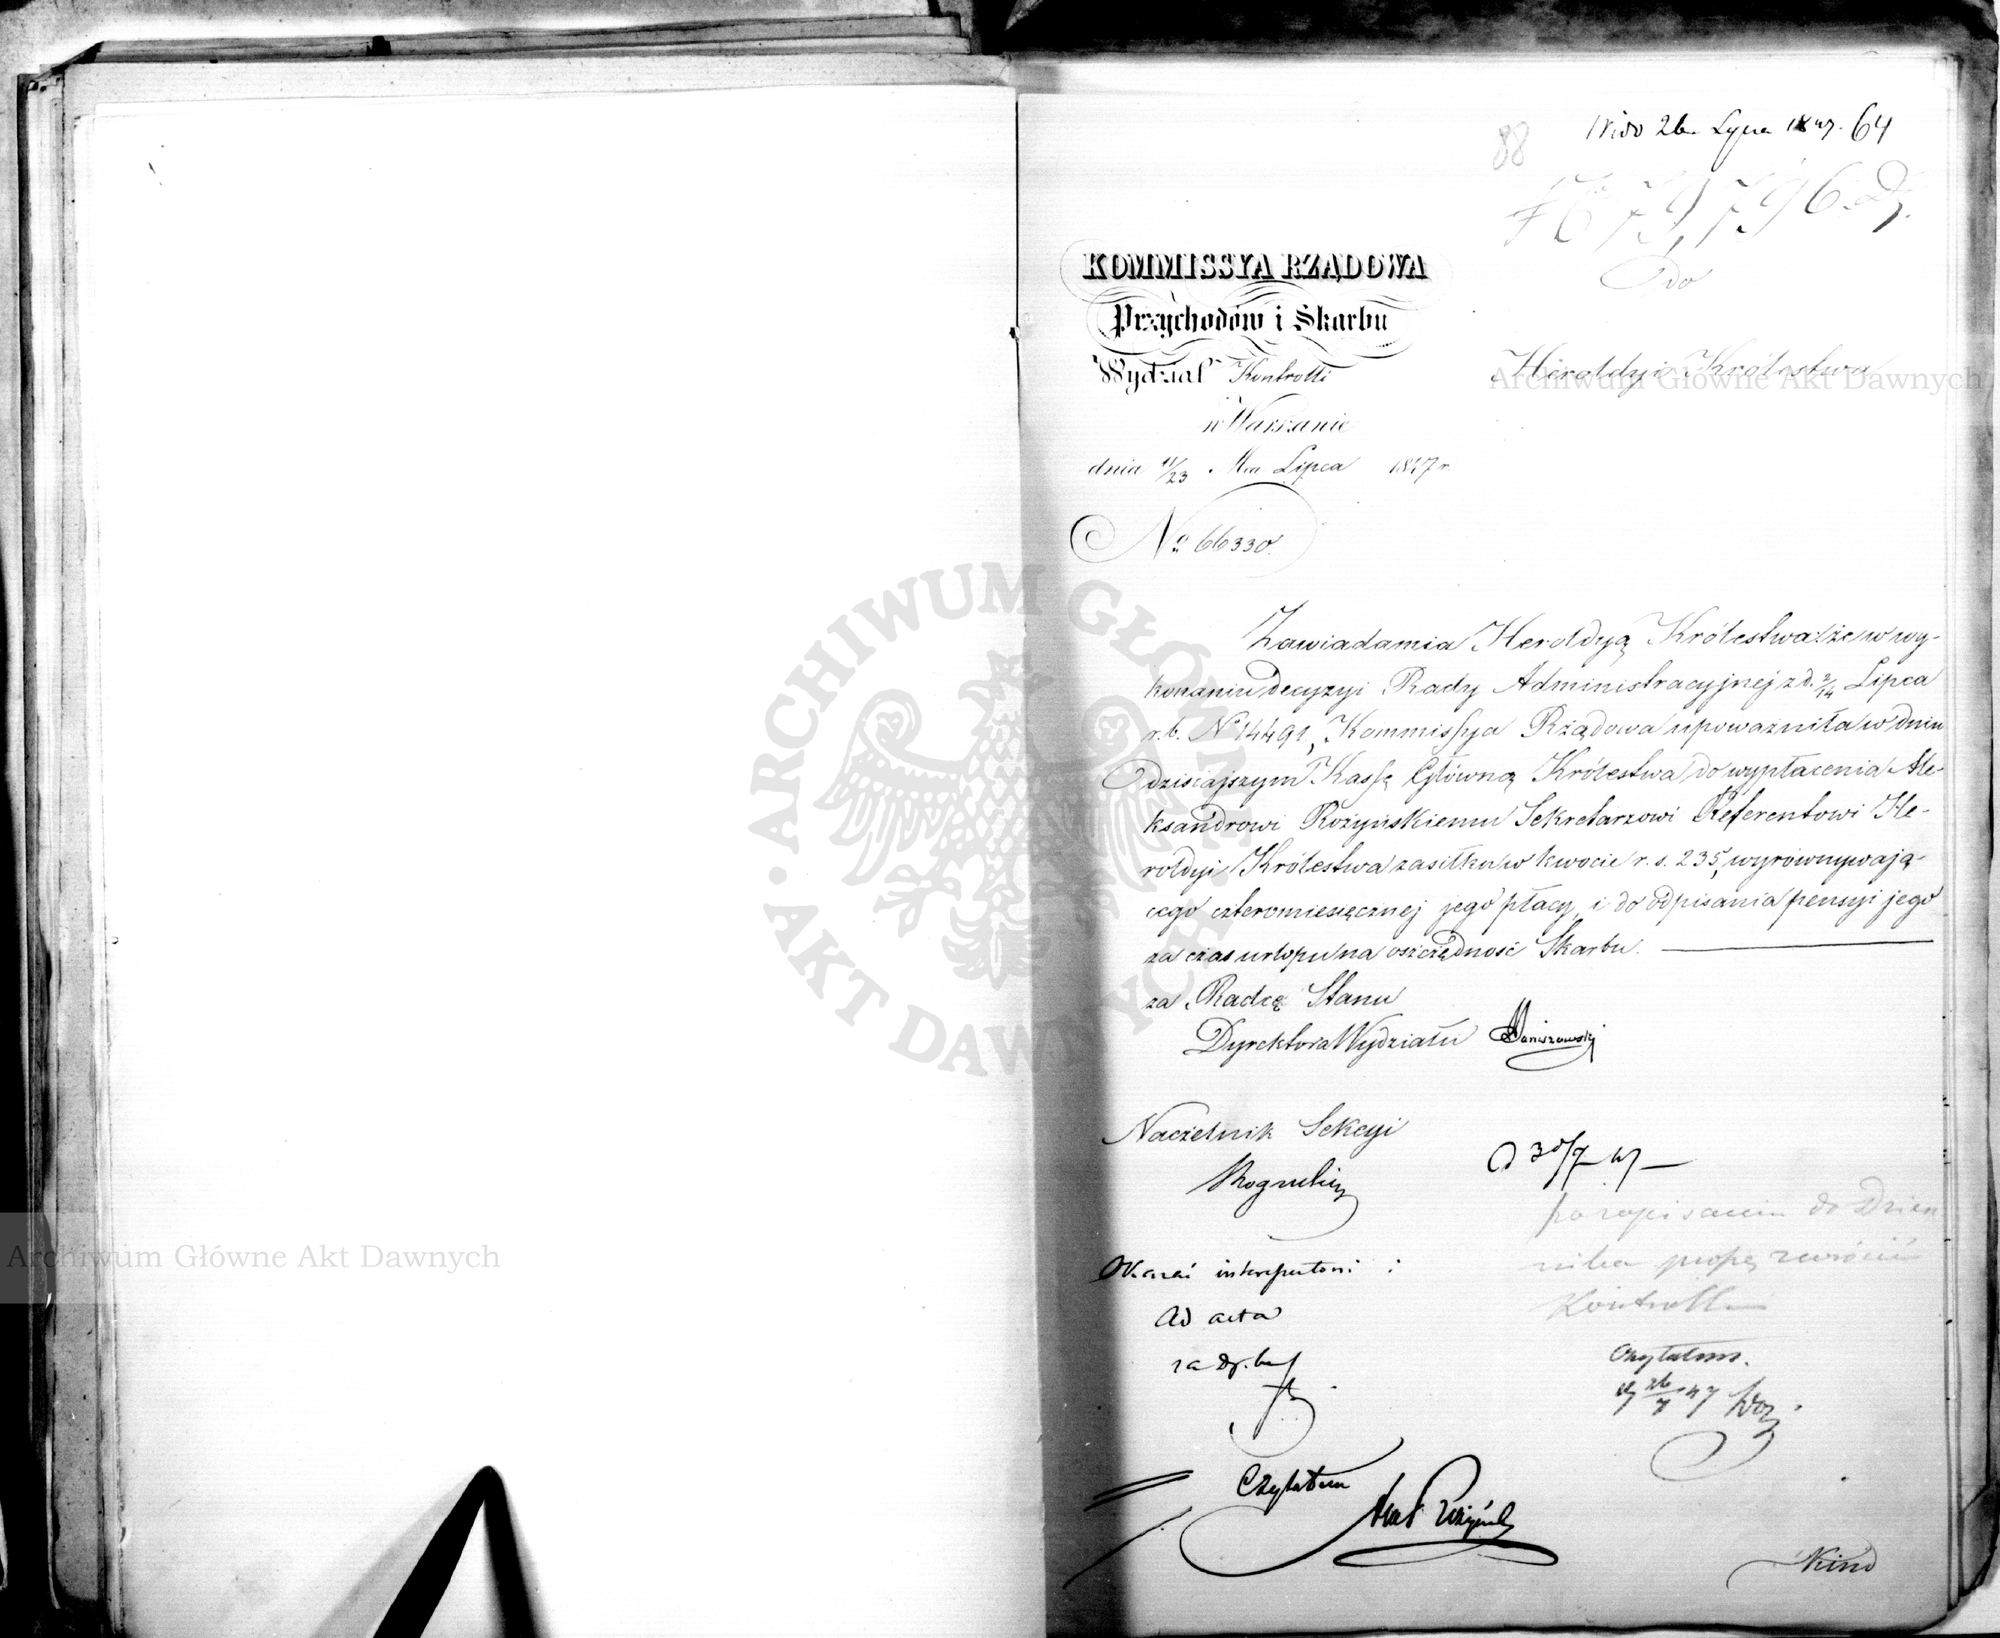 88
26 Lipca 1847. 64
do
KOMMISSYA RZĄDOWA
Przychodów i Skarbu
Wydział Kontrolli
w Warszawie
dnia 11/23 Mca Lipca 1847 r.
No 66330.
Heroldyi Królestwa
Zawiadamia Heroldyą Królestwa że w wy-
konaniu decyzyi Rady Administracyjnej z d. 2/14 Lipca
r. b. No 14491, Kommissya Rządowa upoważniła w dniu
dzisiajszym Kassę Główną Królestwa do wypłacenia Ale-
ksandrowi Rożyńskiemu Sekretarzowi Referentowi He-
roldyi Królestwa zasiłku w kwocie r. s. 235, wyrównywają-
cego czteromiesięcznej jego płacy, i do odpisania pensyi jego
za czas urlopu na oszczędność Skarbu.
za Radcę Stanu
Dyrektora Wydziału
Naczelnik Sekcyi
30/7 47
po zapisaniu do Dzien
nika proszę zwrócić
Kontrolli
Ad acta
Czytałem.
26/7 47
Czytałem
ARCHIWUM GŁÓWNE AKT DAWNYCH
Archiwum Główne Akt Dawnych
Archiwum Główne Akt Dawnych